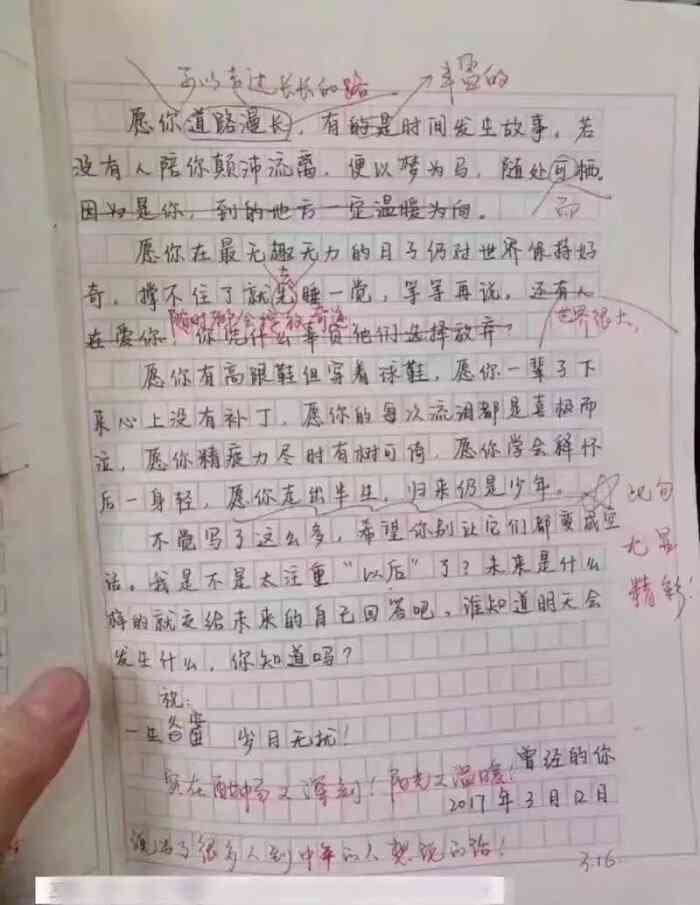 可以走过长长的路 丰盈的
愿你道路漫长,有的是时间发生故事,若
没有人陪你颠沛流离,便以梦为马,随处可栖。
因为是你,到的地方一定温暖为向。 而
愿你在最无趣无力的日子仍对世界保持好
奇,撑不住了就先睡一觉,等等再说,还有人
去
随时都会 奇迹 世界很大,
在爱你,你凭什么辜负他们选择放弃?
愿你有高跟鞋但穿着球鞋,愿你一辈子下
来心上没有补丁,愿你的每次流泪都是喜极而
泣,愿你精疲力尽时有树可倚,愿你学会释怀
后一身轻,愿你走出半生,归来仍是少年。 此句
尤显
精彩!
不觉写了这么多,希望你别让它们都变成空
话。我是不是太注重“以后”了?未来是什么
样的就交给未来的自己回答吧,谁知道明天会
发生什么,你知道吗?
祝:
一生备蜜 岁月无扰!
曾经的你
实在酣畅又深刻!阳光又温暖!
2017年3月12日
说出了很多人到中年的人想说的话!
3.16